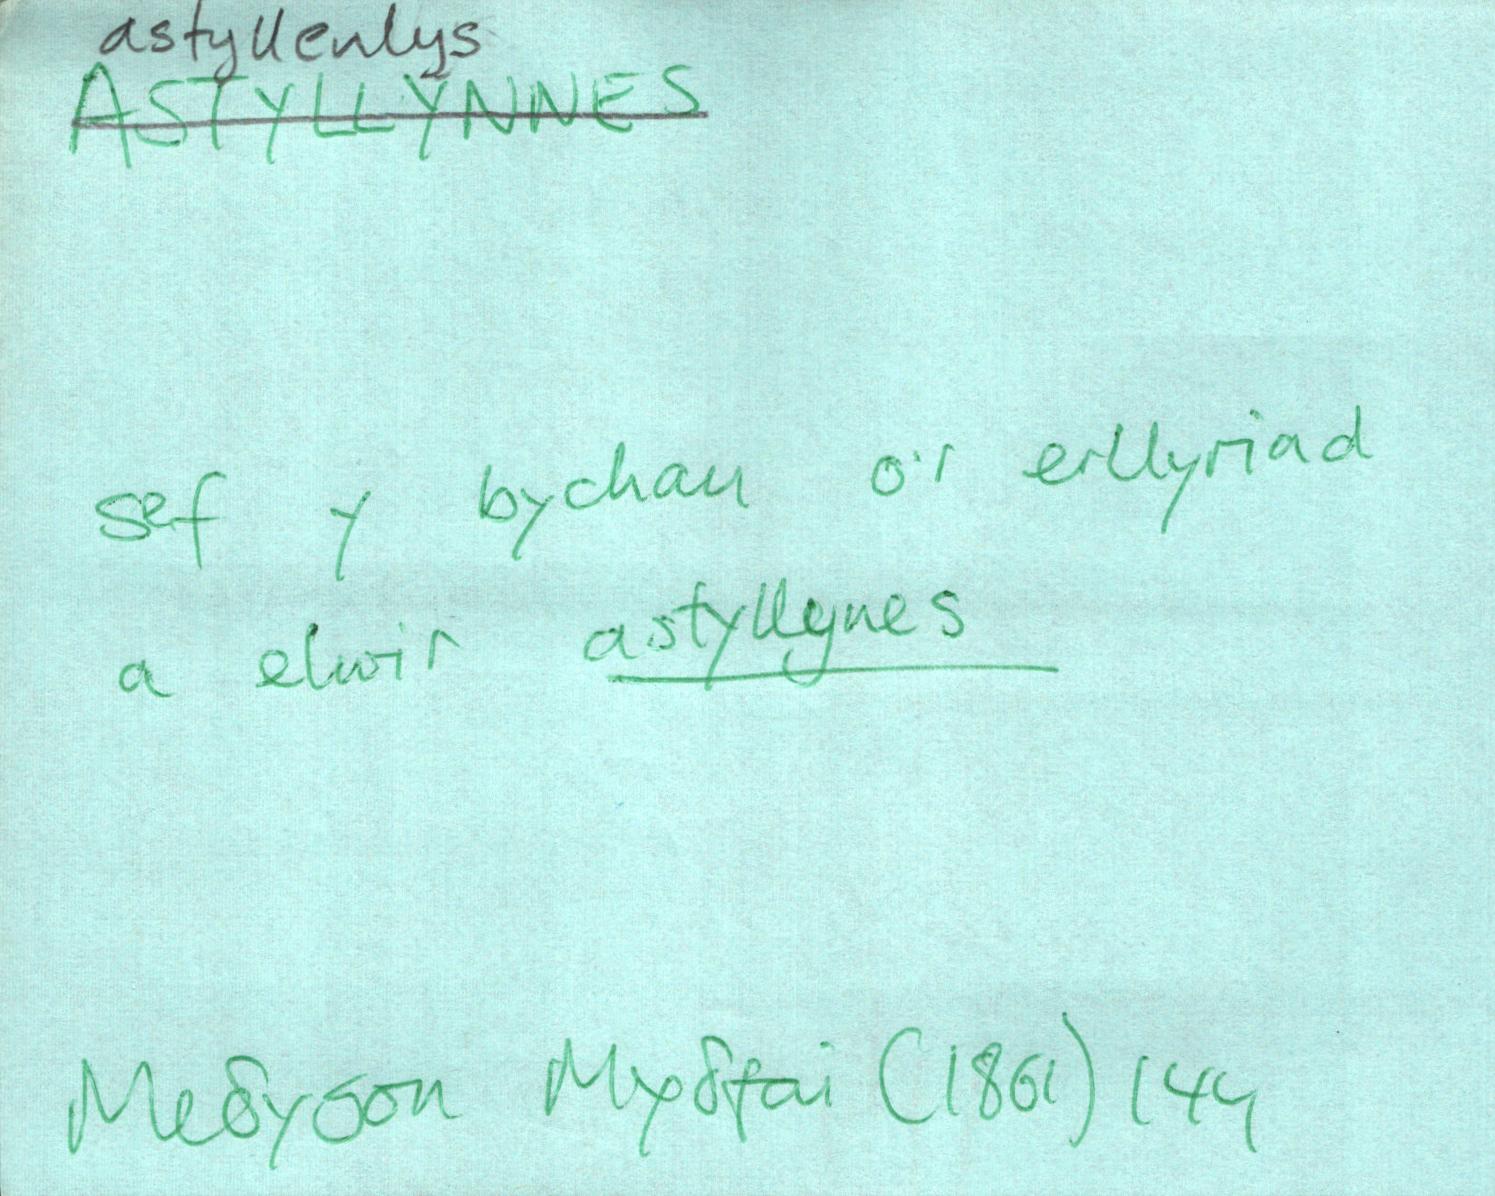 astyllenlys
ASTYLLYNNES
sef y bychan o'r erllyriad
a elwir astyllynes
Meδygon Myδfai (1861) 144